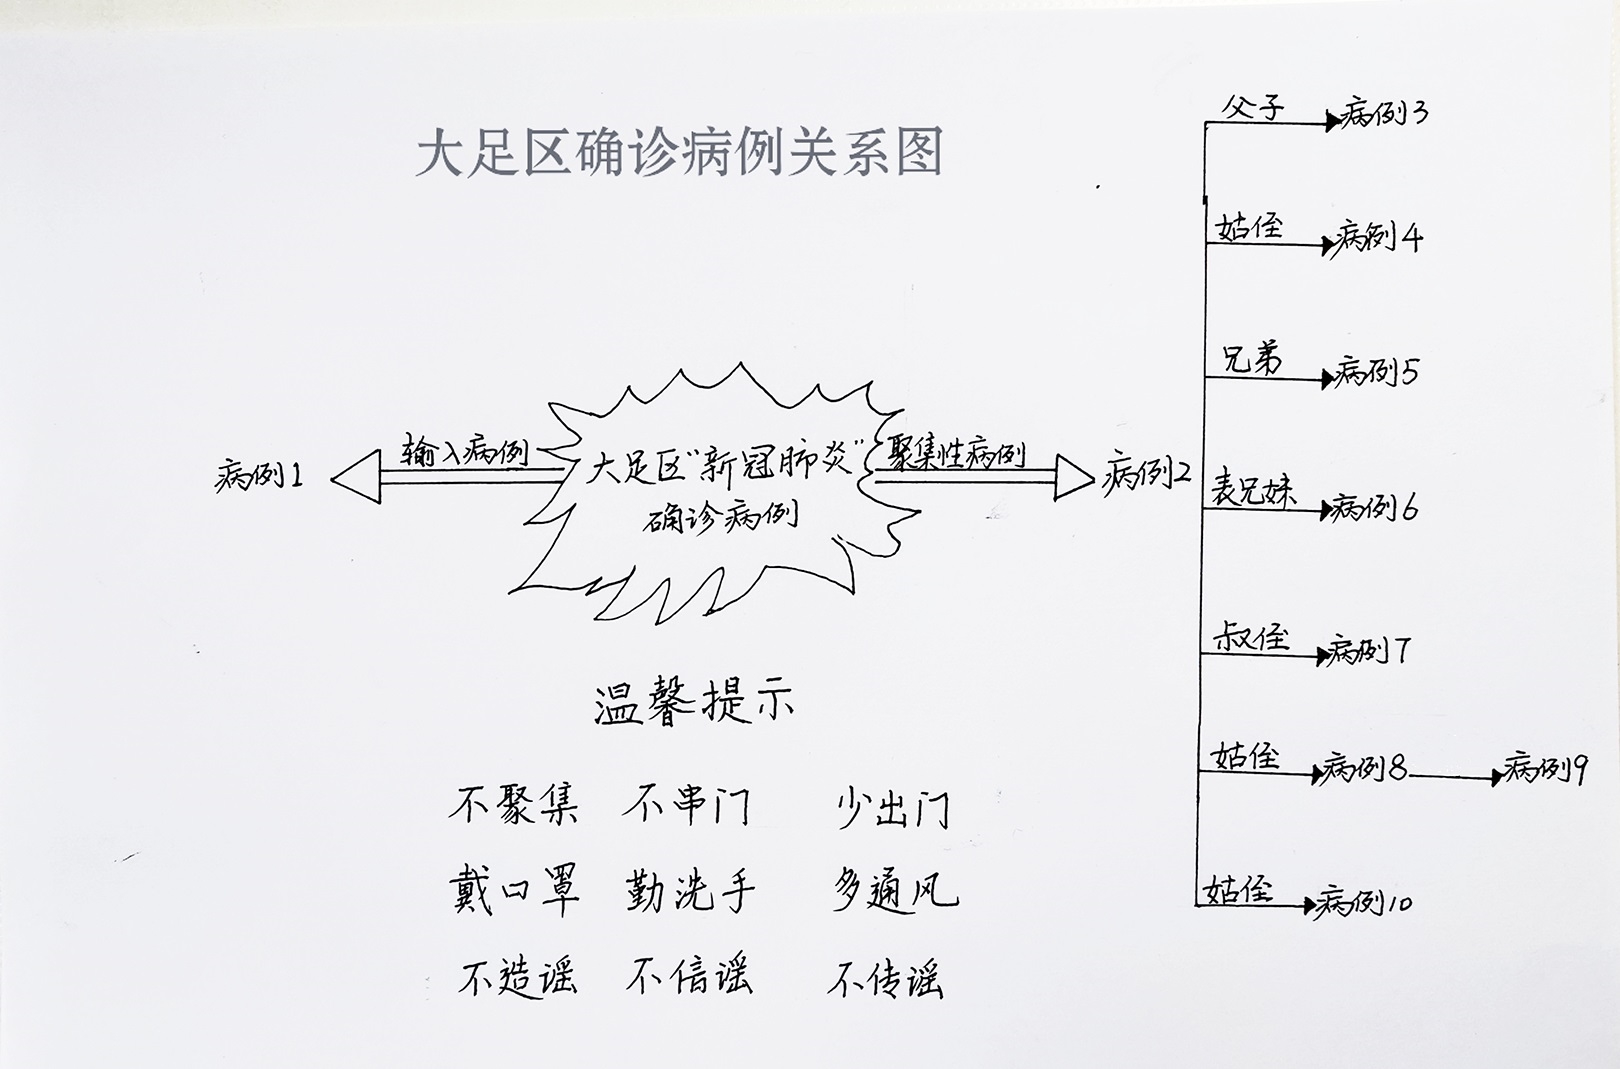 大足区确诊病例关系图
病例1
输入病例
大足区"新冠肺炎"
确诊病例
聚集性病例
病例2
父子
病例3
姑侄
病例4
兄弟
病例5
表兄妹
病例6
叔侄
病例7
姑侄
病例8
病例9
姑侄
病例10
温馨提示
不聚集 不串门 少出门
戴口罩 勤洗手 多通风
不造谣 不信谣 不传谣